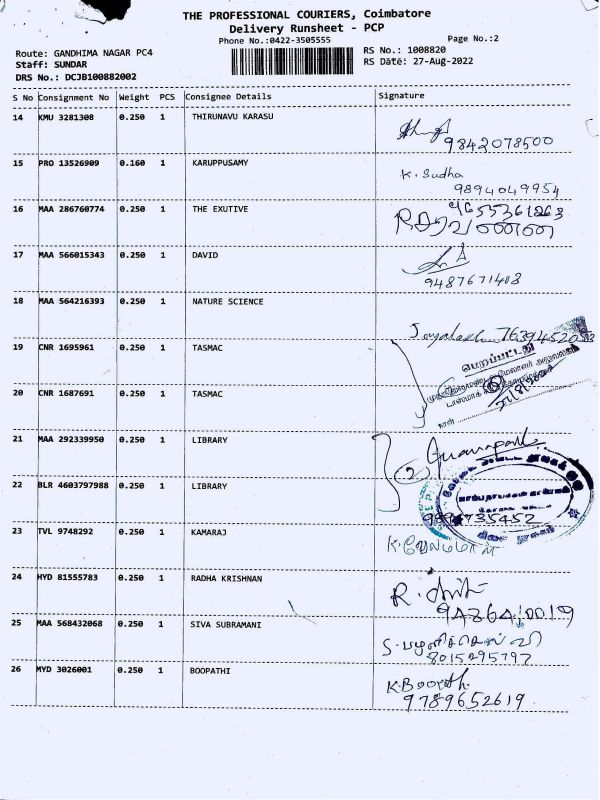 THE PROFESSIONAL COURIERS, Coimbatore
Delivery Runsheet - PCP
Phone No.:0422-3505555
Page No.:2
Route: GANDHIMA NAGAR PC4
RS No.: 1008820
Staff: SUNDAR
RS Date: 27-Aug-2022
DRS No.: DCJB100882002
S No Consignment No Weight PCS Consignee Details Signature
14 KMU 3281308 0.250 1 THIRUNAVU KARASU
9842078500
15 PRO 13526909 0.160 1 KARUPPUSAMY
K. Sudha
9894049954
16 MAA 286760774 0.250 1 THE EXUTIVE
9655361263
17 MAA 566015343 0.250 1 DAVID
9487671408
18 MAA 564216393 0.250 1 NATURE SCIENCE
19 CNR 1695961 0.250 1 TASMAC
பெறப்பட்டது
20 CNR 1687691 0.250 1 TASMAC
நாள்
21 MAA 292339950 0.250 1 LIBRARY
2
22 BLR 4603797988 0.250 1 LIBRARY
23 TVL 9748292 0.250 1 KAMARAJ
K. வேலம்மாள்
24 HYD 81555783 0.250 1 RADHA KRISHNAN
25 MAA 568432068 0.250 1 SIVA SUBRAMANI
S. பழனிச்செல்வி
8015295797
26 MYD 3026001 0.250 1 BOOPATHI
K.Boopath.
9789652619